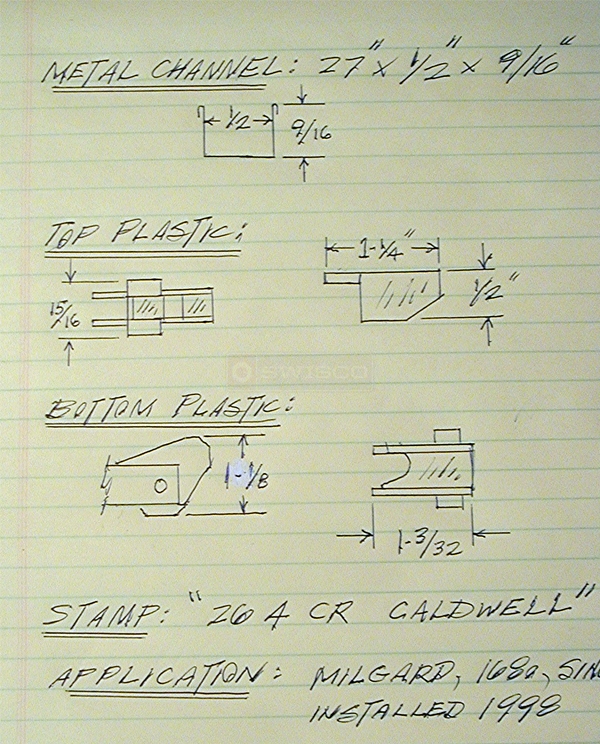 METAL CHANNEL: 27" x 1/2" x 9/16"
1/2
9/16
TOP PLASTIC:
15/16
1-1/4"
1/2"
SWISCO
BOTTOM PLASTIC:
1-1/8
1-3/32
STAMP: "26 A CR CALDWELL"
APPLICATION: MILGARD,
INSTALLED 1998